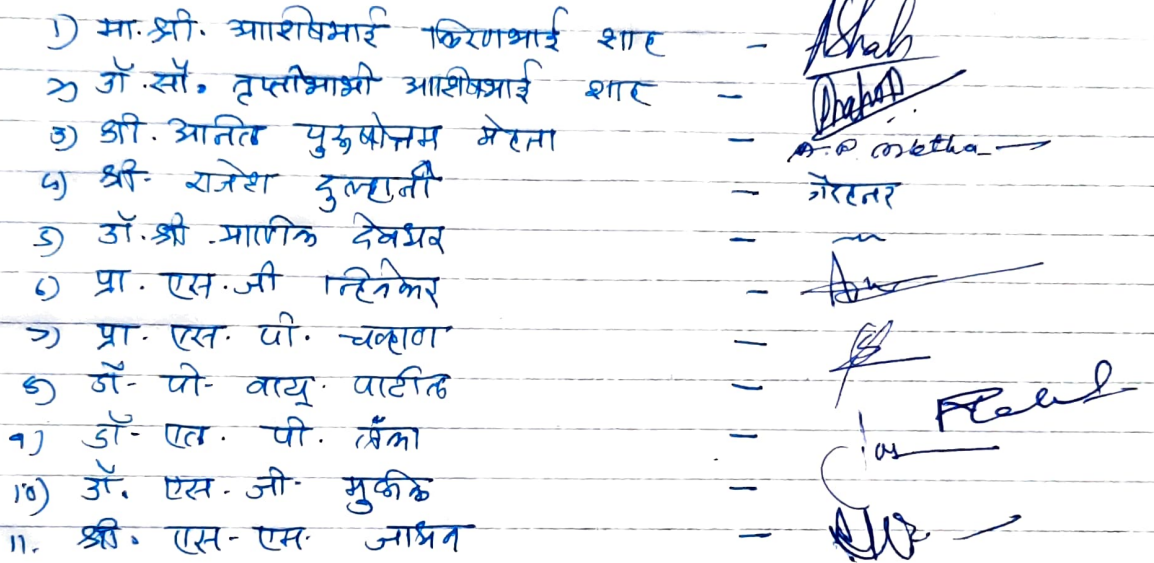 1) मा. श्री. आशिषभाई किरणभाई शाह - AShah
2) डॉ. सौ. तृप्तीभाभी आशिषभाई शाह -
3) श्री. अनिल पुरुषोत्तम मेहता - A. P. Metha
4) श्री. राजेश दुल्हानी - गैरहजर
5) डॉ. श्री. माणिक देवधर -
6) प्रा. एस. जी -
7) प्रा. एस. पी. चव्हाण -
8) डॉ- पी- वाय. पाटील -
9) डॉ- एल. पी. लंका -
10) डॉ. एस. जी- मुळीक -
11. श्री. एस- एम. जाधव -